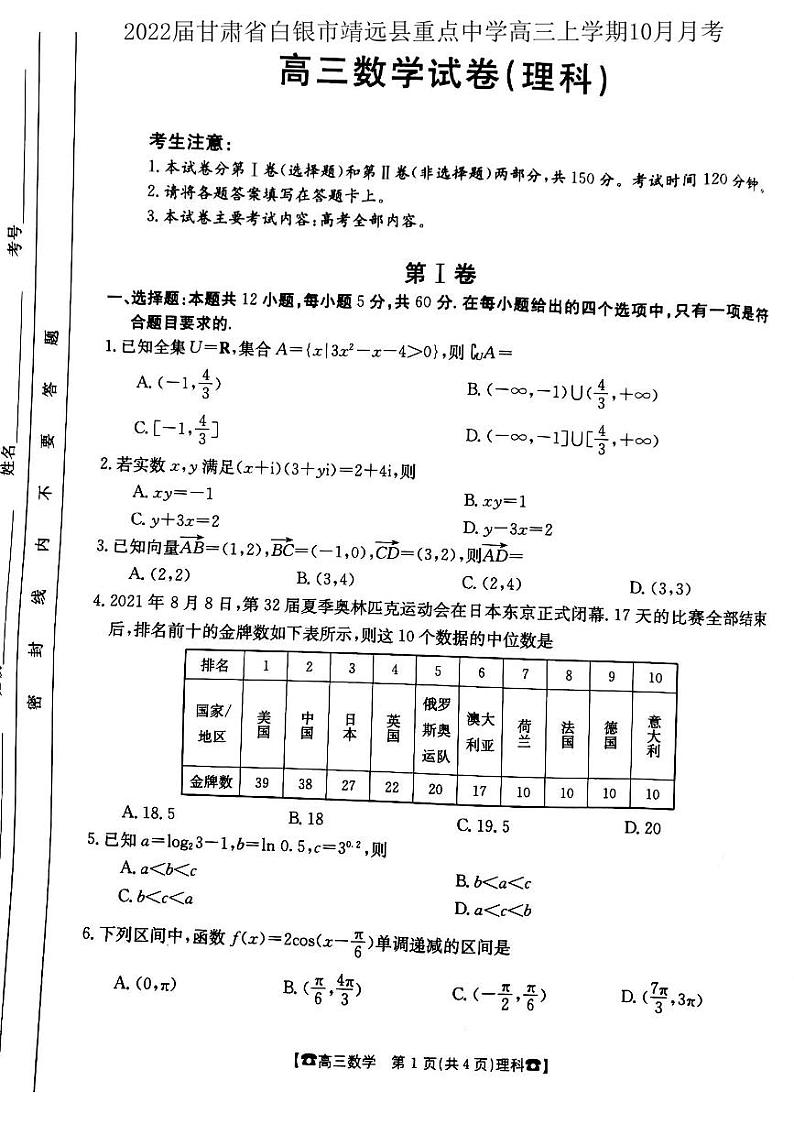 2022届甘肃省白银市靖远县重点中学高三上学期10月月考
高三数学试卷(理科)
考生注意:
1.本试卷分第Ⅰ卷(选择题)和第Ⅱ卷(非选择题)两部分,共150分。考试时间120分钟。
2.请将各题答案填写在答题卡上。
3.本试卷主要考试内容:高考全部内容。
第Ⅰ卷
一、选择题:本题共12小题,每小题5分,共60分.在每小题给出的四个选项中,只有一项是符
合题目要求的.
1.已知全集U=R,集合A={x|3x²-x-4>0},则∁UA=
A.(-1,4/3)
B.(-∞,-1)∪(4/3,+∞)
C.[-1,4/3]
D.(-∞,-1]∪[4/3,+∞)
2.若实数x,y满足(x+i)(3+yi)=2+4i,则
A.xy=-1
B.xy=1
C.y+3x=2
D.y-3x=2
3.已知向量AB=(1,2),BC=(-1,0),CD=(3,2),则AD=
A.(2,2) B.(3,4) C.(2,4) D.(3,3)
4.2021年8月8日,第32届夏季奥林匹克运动会在日本东京正式闭幕.17天的比赛全部结束
后,排名前十的金牌数如下表所示,则这10个数据的中位数是
排名 1 2 3 4 5 6 7 8 9 10
国家/地区 美国 中国 日本 英国 俄罗斯奥运队 澳大利亚 荷兰 法国 德国 意大利
金牌数 39 38 27 22 20 17 10 10 10 10
A.18.5 B.18 C.19.5 D.20
5.已知a=log₂3-1,b=ln 0.5,c=3^0.2,则
A.a<b<c
B.b<a<c
C.b<c<a
D.a<c<b
6.下列区间中,函数f(x)=2cos(x-π/6)单调递减的区间是
A.(0,π) B.(π/6,4π/3) C.(-π/2,π/6) D.(7π/3,3π)
【☎高三数学 第1页(共4页)理科☎】
考号
姓名
密封线内不要答题